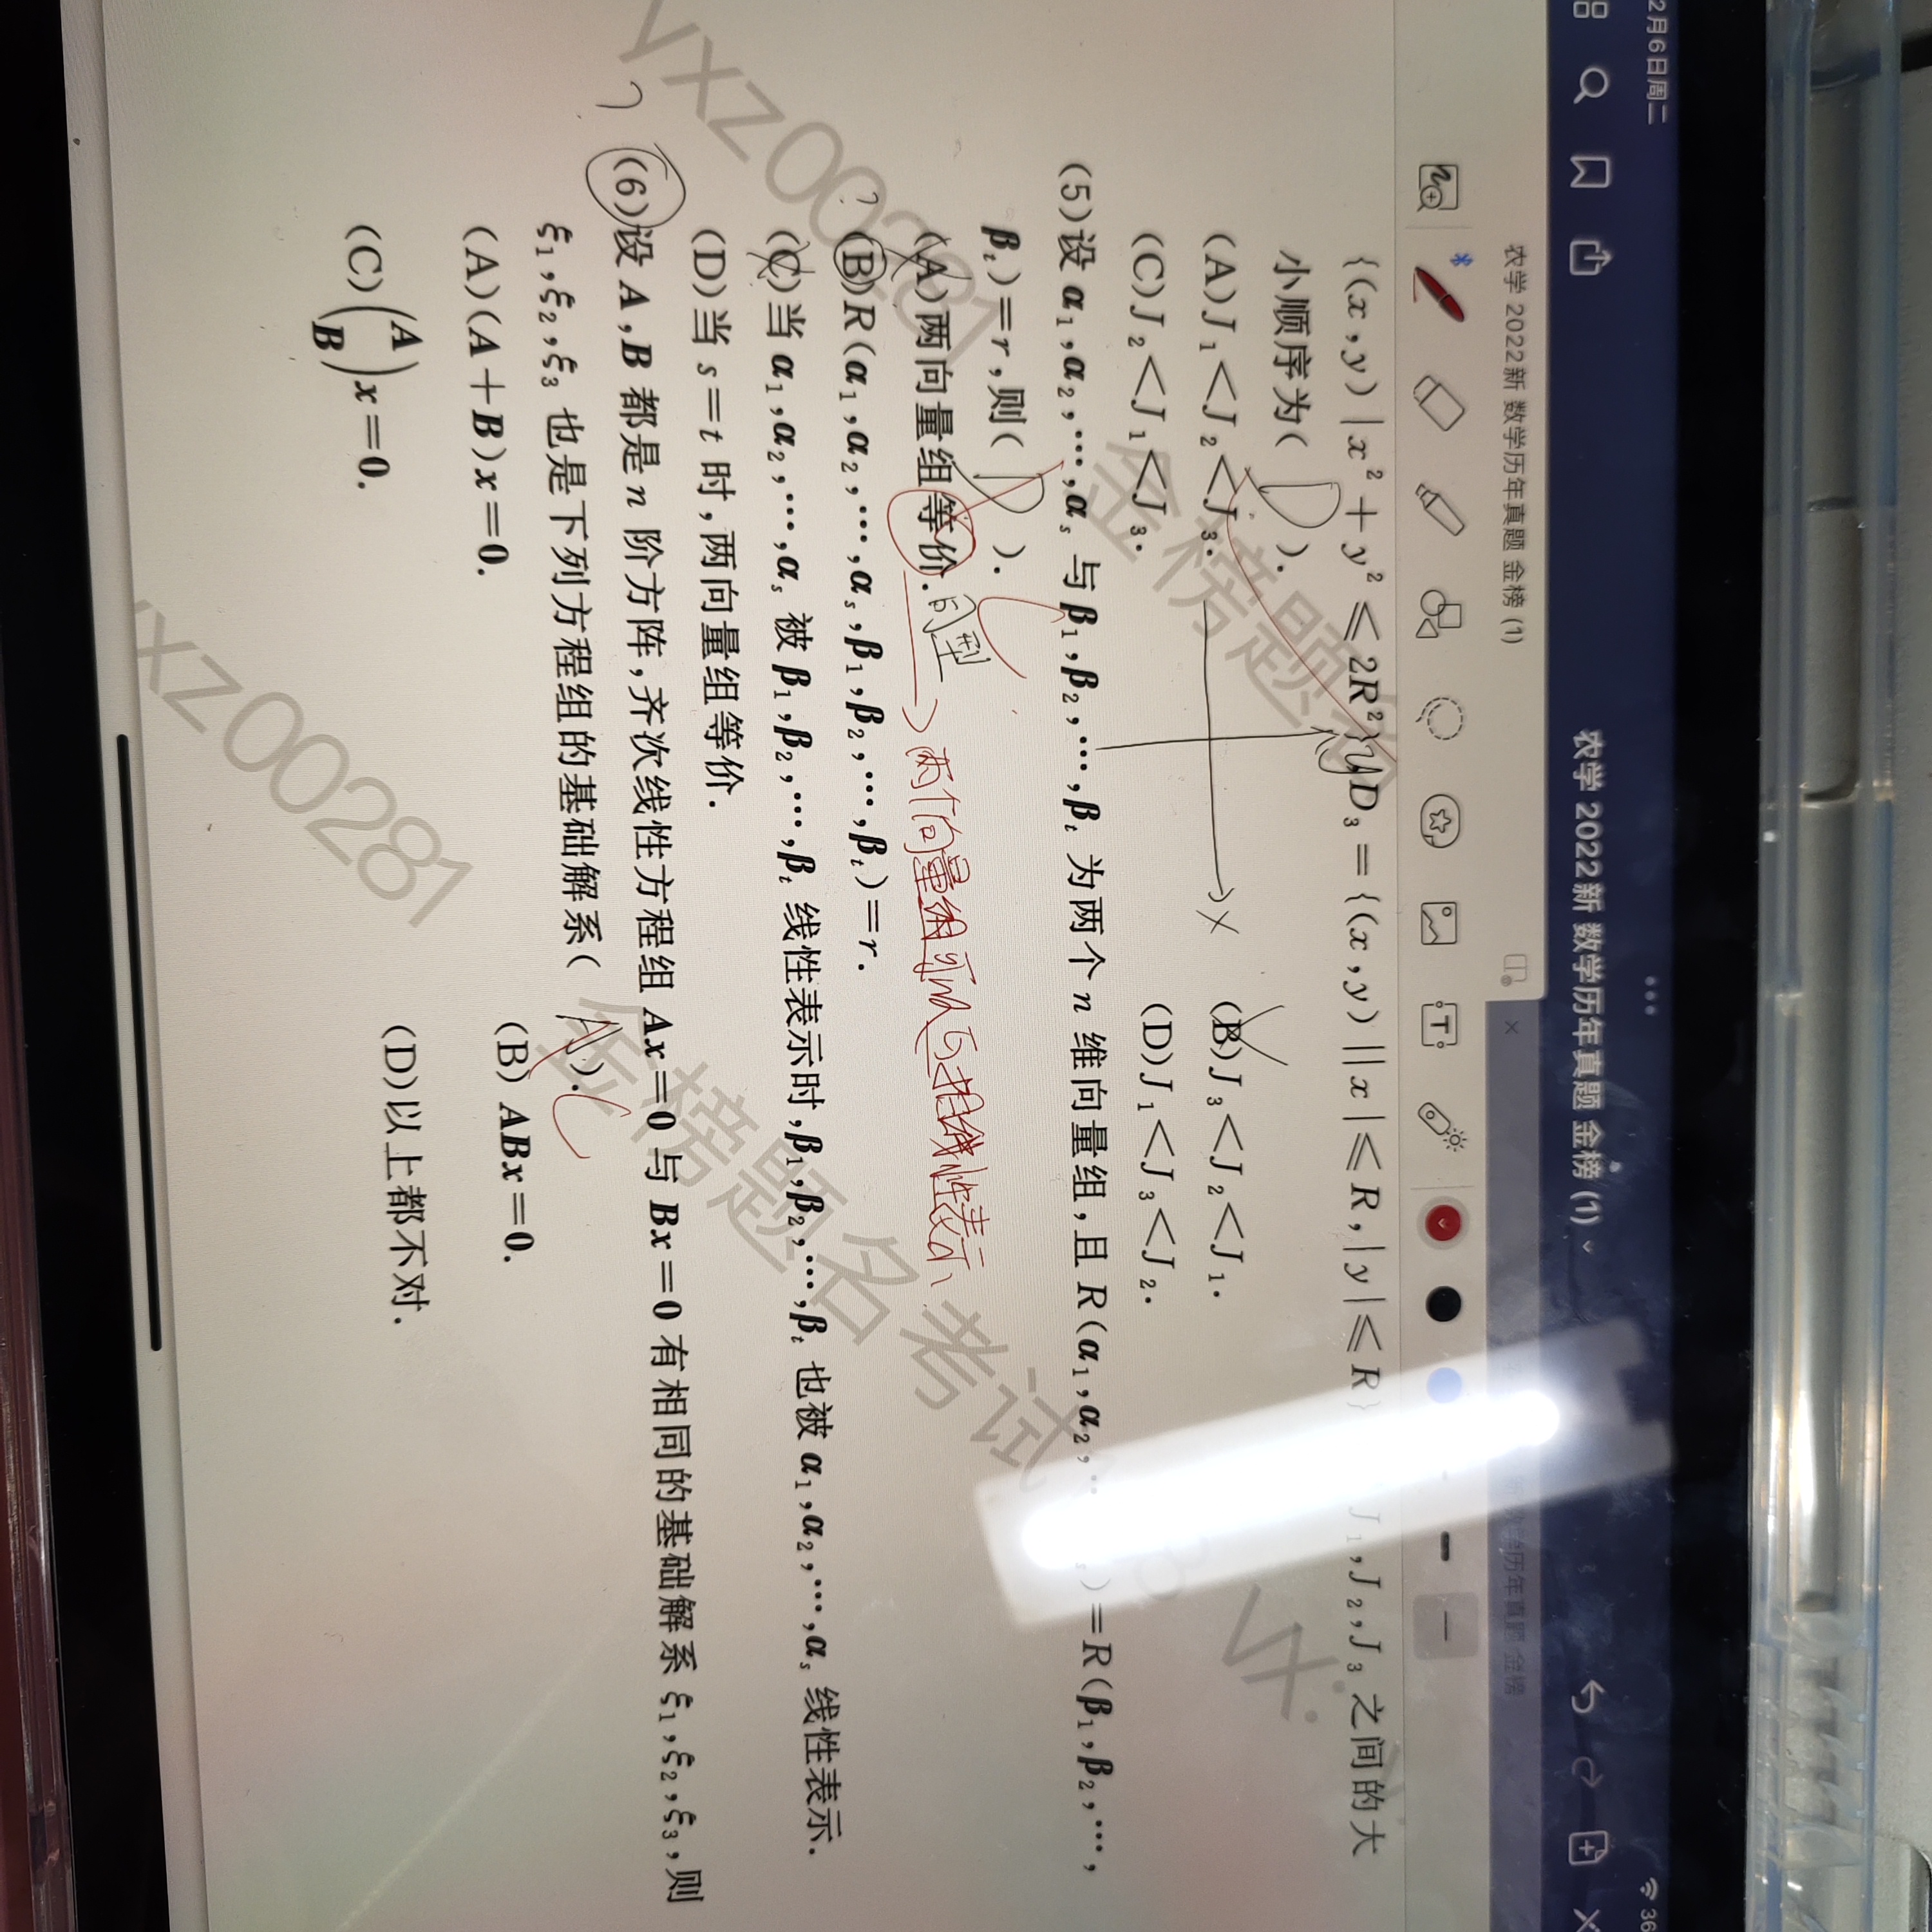 2月6日周二
农学 2022新 数学历年真题 金榜 (1)
农学 2022新 数学历年真题 金榜 (1)
{(x,y)|x²+y²≤2R²},D₃={(x,y)||x|≤R,|y|≤R} J₁,J₂,J₃之间的大
小顺序为( D ).
(A)J₁<J₂<J₃.
(B)J₃<J₂<J₁.
(C)J₂<J₁<J₃.
(D)J₁<J₃<J₂.
(5)设α₁,α₂,…,αₛ与β₁,β₂,…,βₜ为两个n维向量组,且R(α₁,α₂, )=R(β₁,β₂,…,
βₜ)=r,则( D ).
(A)两向量组等价. 同型
两个向量组可以互相线性表示
(B)R(α₁,α₂,…,αₛ,β₁,β₂,…,βₜ)=r.
(C)当α₁,α₂,…,αₛ被β₁,β₂,…,βₜ线性表示时,β₁,β₂,…,βₜ也被α₁,α₂,…,αₛ线性表示.
(D)当s=t时,两向量组等价.
(6)设A,B都是n阶方阵,齐次线性方程组Ax=0与Bx=0有相同的基础解系ξ₁,ξ₂,ξ₃,则
ξ₁,ξ₂,ξ₃也是下列方程组的基础解系( A ). C
(A)(A+B)x=0.
(B) ABx=0.
(C)(A
B)x=0.
(D)以上都不对.
金榜题名考试
vxz00281
vxz00281